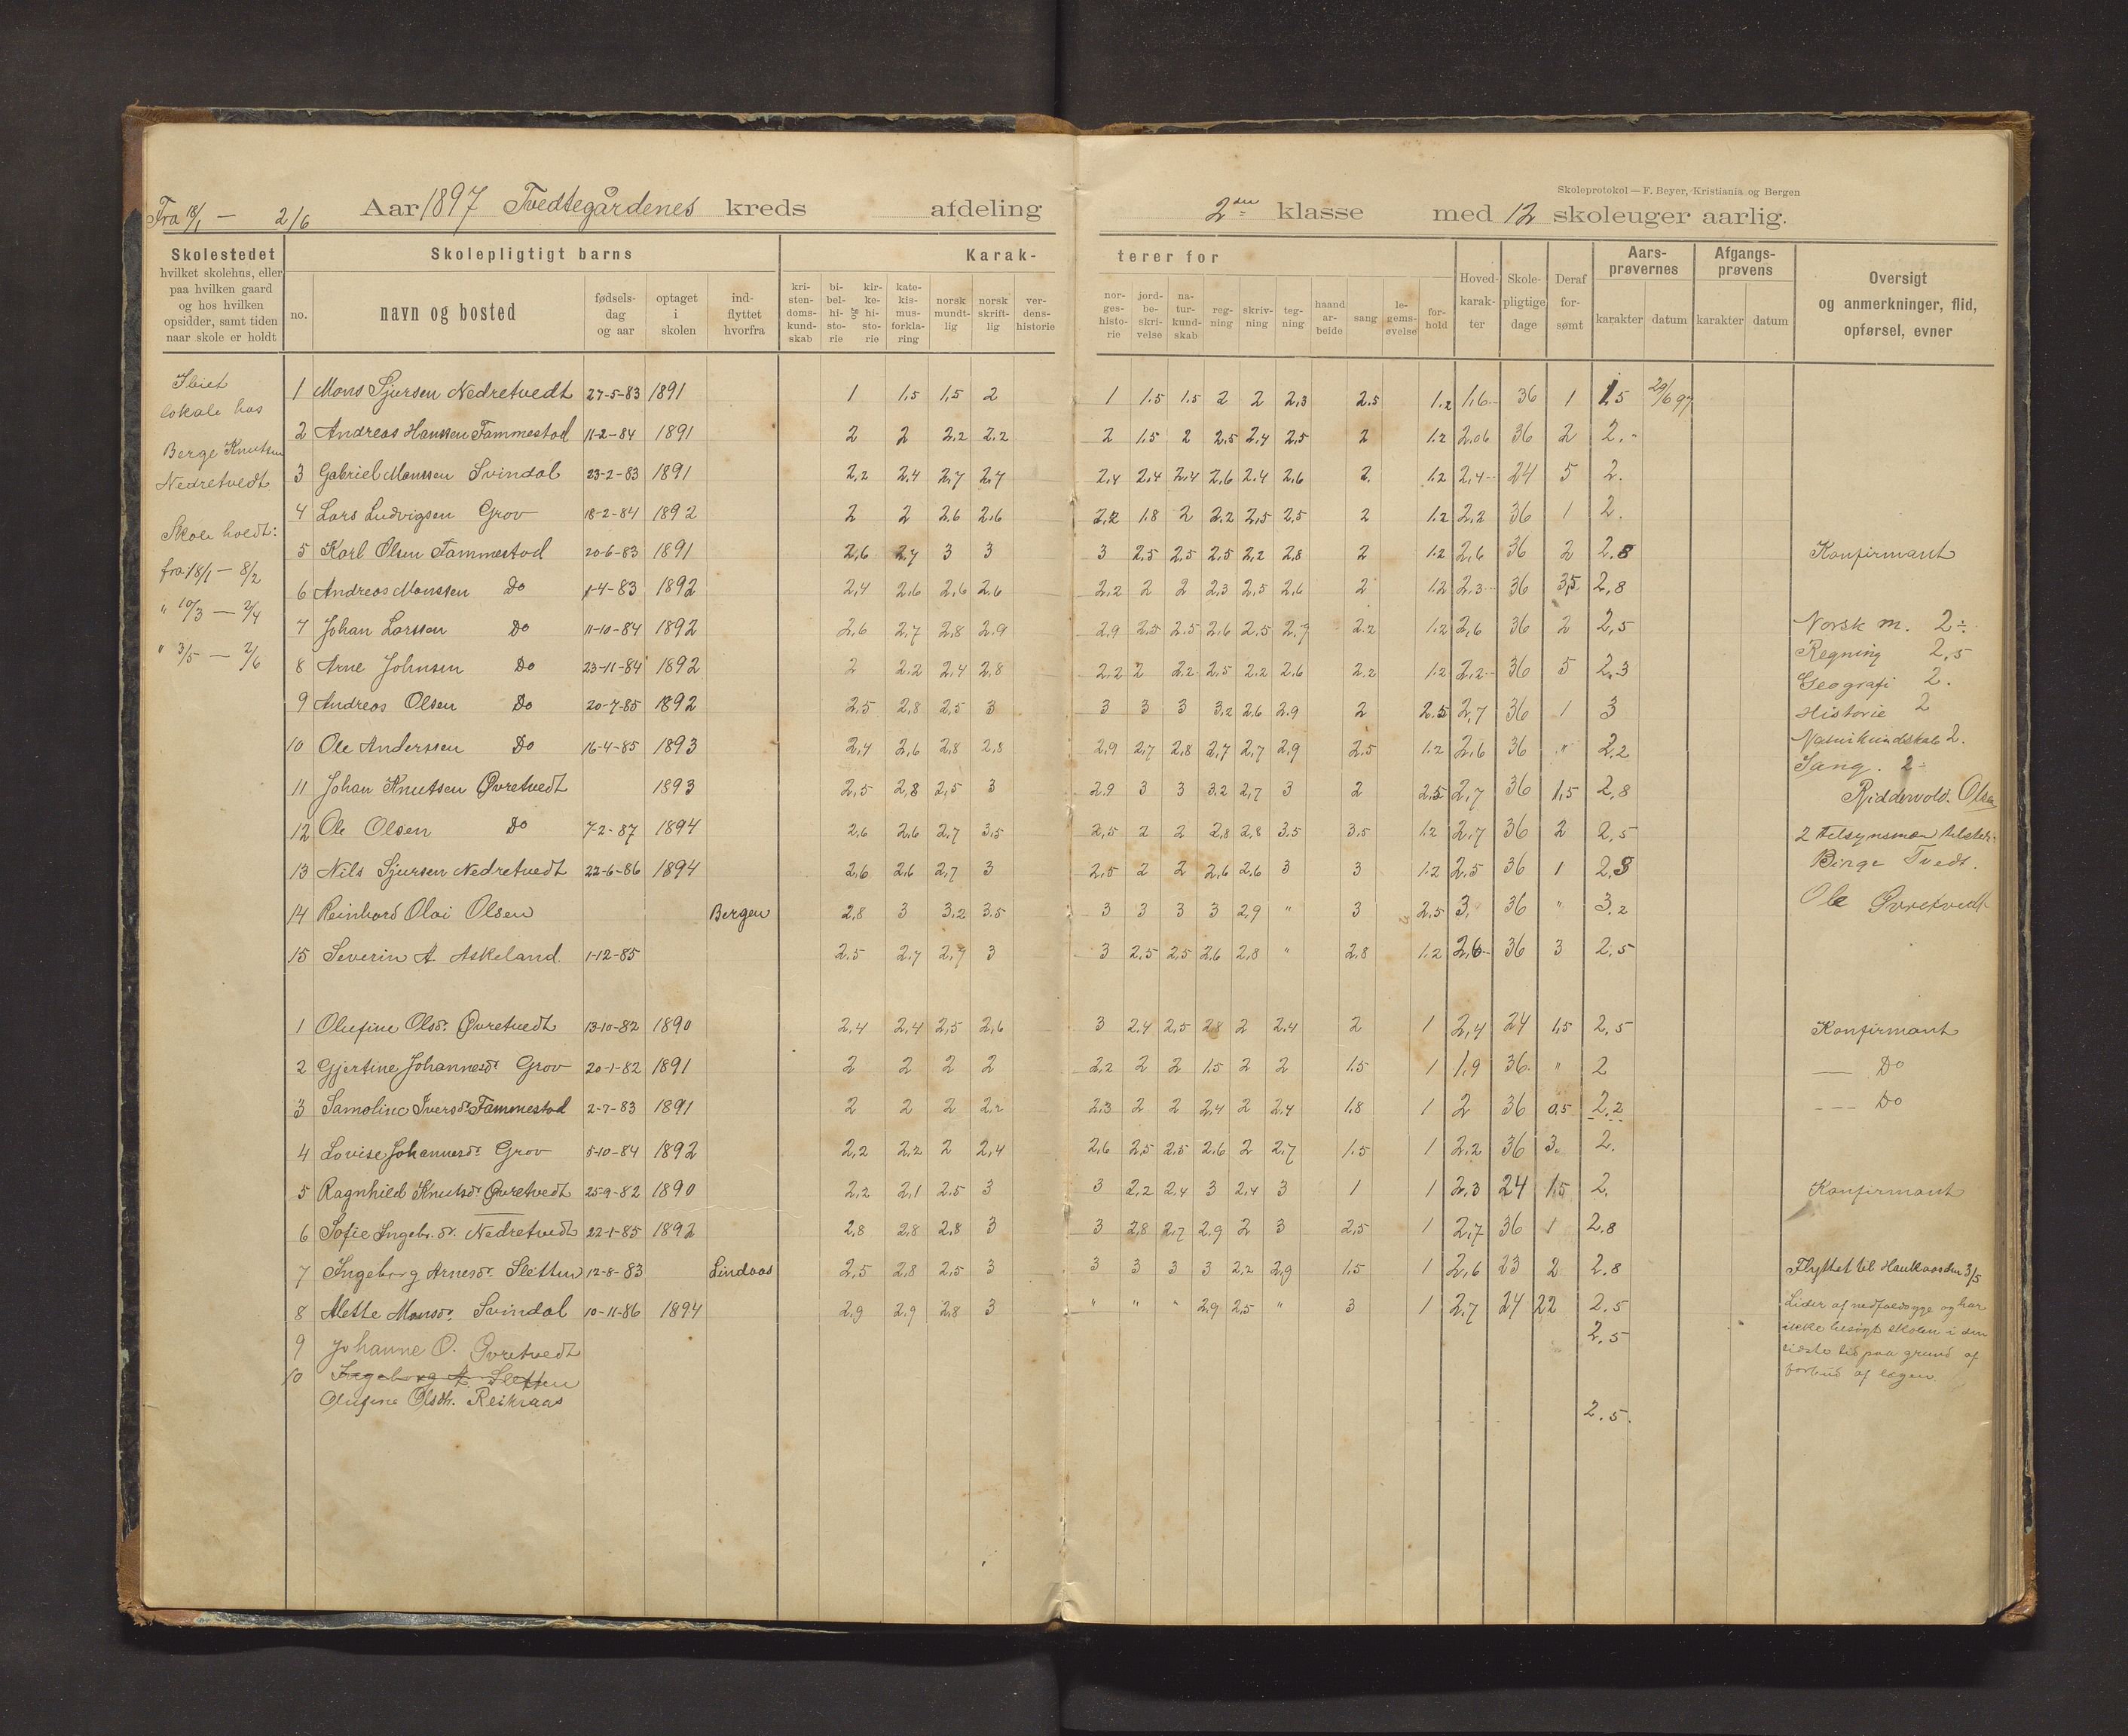 Skoleprotokol — F. Beyer, Kristiania og Bergen
Fra 18/1 — 2/6 Aar 1897 Tvedtegårdenes kreds afdeling 2den klasse med 12 skoleuger aarlig.
Skolestedet
hvilket skolehus, eller
paa hvilken gaard
og hos hvilken
opsidder, samt tiden
naar skole er holdt
Skolepligtigt barns
no.
navn og bosted
fødsels-
dag
og aar
optaget
i
skolen
ind-
flyttet
hvorfra
Karak-
terer for
kri-
sten-
doms-
kund-
skab
bi-
bel-
hi-
sto-
rie
og
kir-
ke-
hi-
sto-
rie
kate-
kis-
mus-
forkla-
ring
norsk
mundt-
lig
norsk
skrift-
lig
ver-
dens-
historie
nor-
ges-
histo-
rie
jord-
be-
skri-
velse
na-
tur-
kund-
skab
reg-
ning
skriv-
ning
teg-
ning
haand
ar-
beide
sang
le-
gems-
øvelse
for-
hold
Hoved-
karak-
ter
Skole-
pligtige
dage
Deraf
for-
sømt
Aars-
prøvernes
karakter datum
Afgangs-
prøvens
karakter datum
Oversigt
og anmerkninger, flid,
opførsel, evner
Ileiet
lokale hos
Berge Knutsen
Nedretvedt
Skole holdt:
fra 18/1 — 8/2
" 10/3 — 2/4
" 3/5 — 2/6
1 Mons Sjursen Nedretvedt 27-5-83 1891 1 1,5 1,5 2 1 1.5 1.5 2 2 2,3 2.5 1.2 1,6 36 1 1,5 29/6 97
2 Andreas Hanssen Tammestad 11-2-84 1891 2 2 2,2 2,2 2 1.5 2 2.5 2,4 2,5 2 1.2 2,06 36 2 2.
3 Gabriel Monssen Svindal 23-2-83 1891 2,2 2,4 2,7 2,7 2,4 2,4 2,4 2,6 2,4 2,6 2. 1.2 2,4 24 5 2.
4 Lars Ludvigsen Grov 18-2-84 1892 2 2 2,6 2,6 2,2 1.8 2 2.2 2,5 2,5 2 1.2 2,2 36 1 2.
5 Karl Olsen Tammestad 20-6-83 1891 2,6 2,7 3 3 3 2,5 2,5 2,5 2,2 2,8 2 1.2 2,6 36 2 2.8 Konfirmant
6 Andreas Monssen Do 1-4-83 1892 2,4 2,6 2,6 2,6 2,2 2 2 2,3 2,5 2,6 2 1.2 2,3 36 3,5 2,8
7 Johan Larssen Do 11-10-84 1892 2,6 2,7 2,8 2,9 2,9 2,5 2,5 2,6 2,5 2,7 2.2 1.2 2,6 36 2 2,5 Norsk m. 2÷
8 Arne Johnsen Do 23-11-84 1892 2 2,2 2,4 2,8 2,2 2 2,2 2,5 2,2 2,6 2.2 1.2 2,2 36 5 2.3 Regning 2,5
Geografi 2.
9 Andreas Olsen Do 20-7-85 1892 2,5 2,8 2,5 3 3 3 3 3,2 2,6 2,9 2 2.5 2,7 36 1 3 Historie 2
10 Ole Anderssen Do 16-4-85 1893 2,4 2,6 2,8 2,8 2,9 2,7 2,8 2,7 2,7 2,9 2,5 1.2 2,6 36 " 2.2 Naturkundskab 2.
Sang. 2÷
11 Johan Knutsen Øvretvedt 1893 2,5 2,8 2,5 3 2.9 3 3 3.2 2,7 3 2 2.5 2,7 36 1,5 2,8 Riddervold. Olsen
12 Ole Olsen Do 7-2-87 1894 2,6 2,6 2,7 3,5 2,5 2 2 2,8 2,8 3.5 3,5 1.2 2,7 36 2 2,5 2 tilsynsmæn tilstede:
13 Nils Sjursen Nedretvedt 22-6-86 1894 2,6 2,6 2,7 3 2,5 2 2 2,6 2,6 3 3 1.2 2,5 36 1 2,8 Birge Tvedt.
14 Reinhard Olai Olsen Bergen 2,8 3 3.2 3.5 3 3 3 3 2,9 " 3 2.5 3. 36 " 3.2 Ole Øvretvedt
15 Severin A. Askeland. 1-12-85 2.5 2,7 2,7 3 3 2,5 2,5 2,6 2,8 " 2,8 1.2 2,6 36 3 2,5
1 Olufine Olsdr. Øvretvedt 13-10-82 1890 2,4 2,4 2,5 2,6 3 2,4 2,5 2,8 2 2.4 2 1 2,4 24 1,5 2.5 Konfirmant
2 Gjertine Johannesdr Grov 20-1-82 1891 2 2 2 2 2,2 2 2 1.5 2 2 1.5 1 1,9 36. " 2 — Do
3 Samoline Iversdr. Tammestad 2-7-83 1891 2 2 2 2,2 2,3 2 2 2,4 2 2,4 1.8 1 2 36 0,5 2.2 — Do
4 Lovise Johannesdr. Grov 5-10-84 1892 2,2 2,2 2 2,4 2,6 2,5 2,5 2,6 2 2,7 1.5 1 2,2 36 3. 2.
5 Ragnhild Knutsdr. Øvretvedt 25-9-82 1890 2,2 2,1 2.5 3 3 2,2 2,4 3 2,4 3 1 1 2,3 24 1,5 2. Konfirmant
6 Sofie Ingebr. dr. Nedretvedt 22-1-85 1892 2,8 2,8 2,8 3 3 2,8 2,7 2,9 2 3 2,5 1 2,7 36 1 2.8
7 Ingeborg Arnesdr. Sletten 12-8-83 Lindaas 2,5 2,8 2,5 3 3 3 3 3 2,2 2,9 1,5 1 2,6 23 2 2.8 Flyttet til Haukaasden 3/5
8 Mette Monsdr. Svindal 10-11-86 1894 2,9 2,9 2,8 3 " " " 2,9 2,5 " 3 1 2,7 24 22 2.5 Lider af nedfaldssyge og har
ikke besøgt skolen i den
sidste tid paa grund af
forbud af lægen.
9 Johanne O. Øvretvedt 2,5
10 Ingeborg A. Sletten
Olufine Olsdtr. Reikraas 2.5.